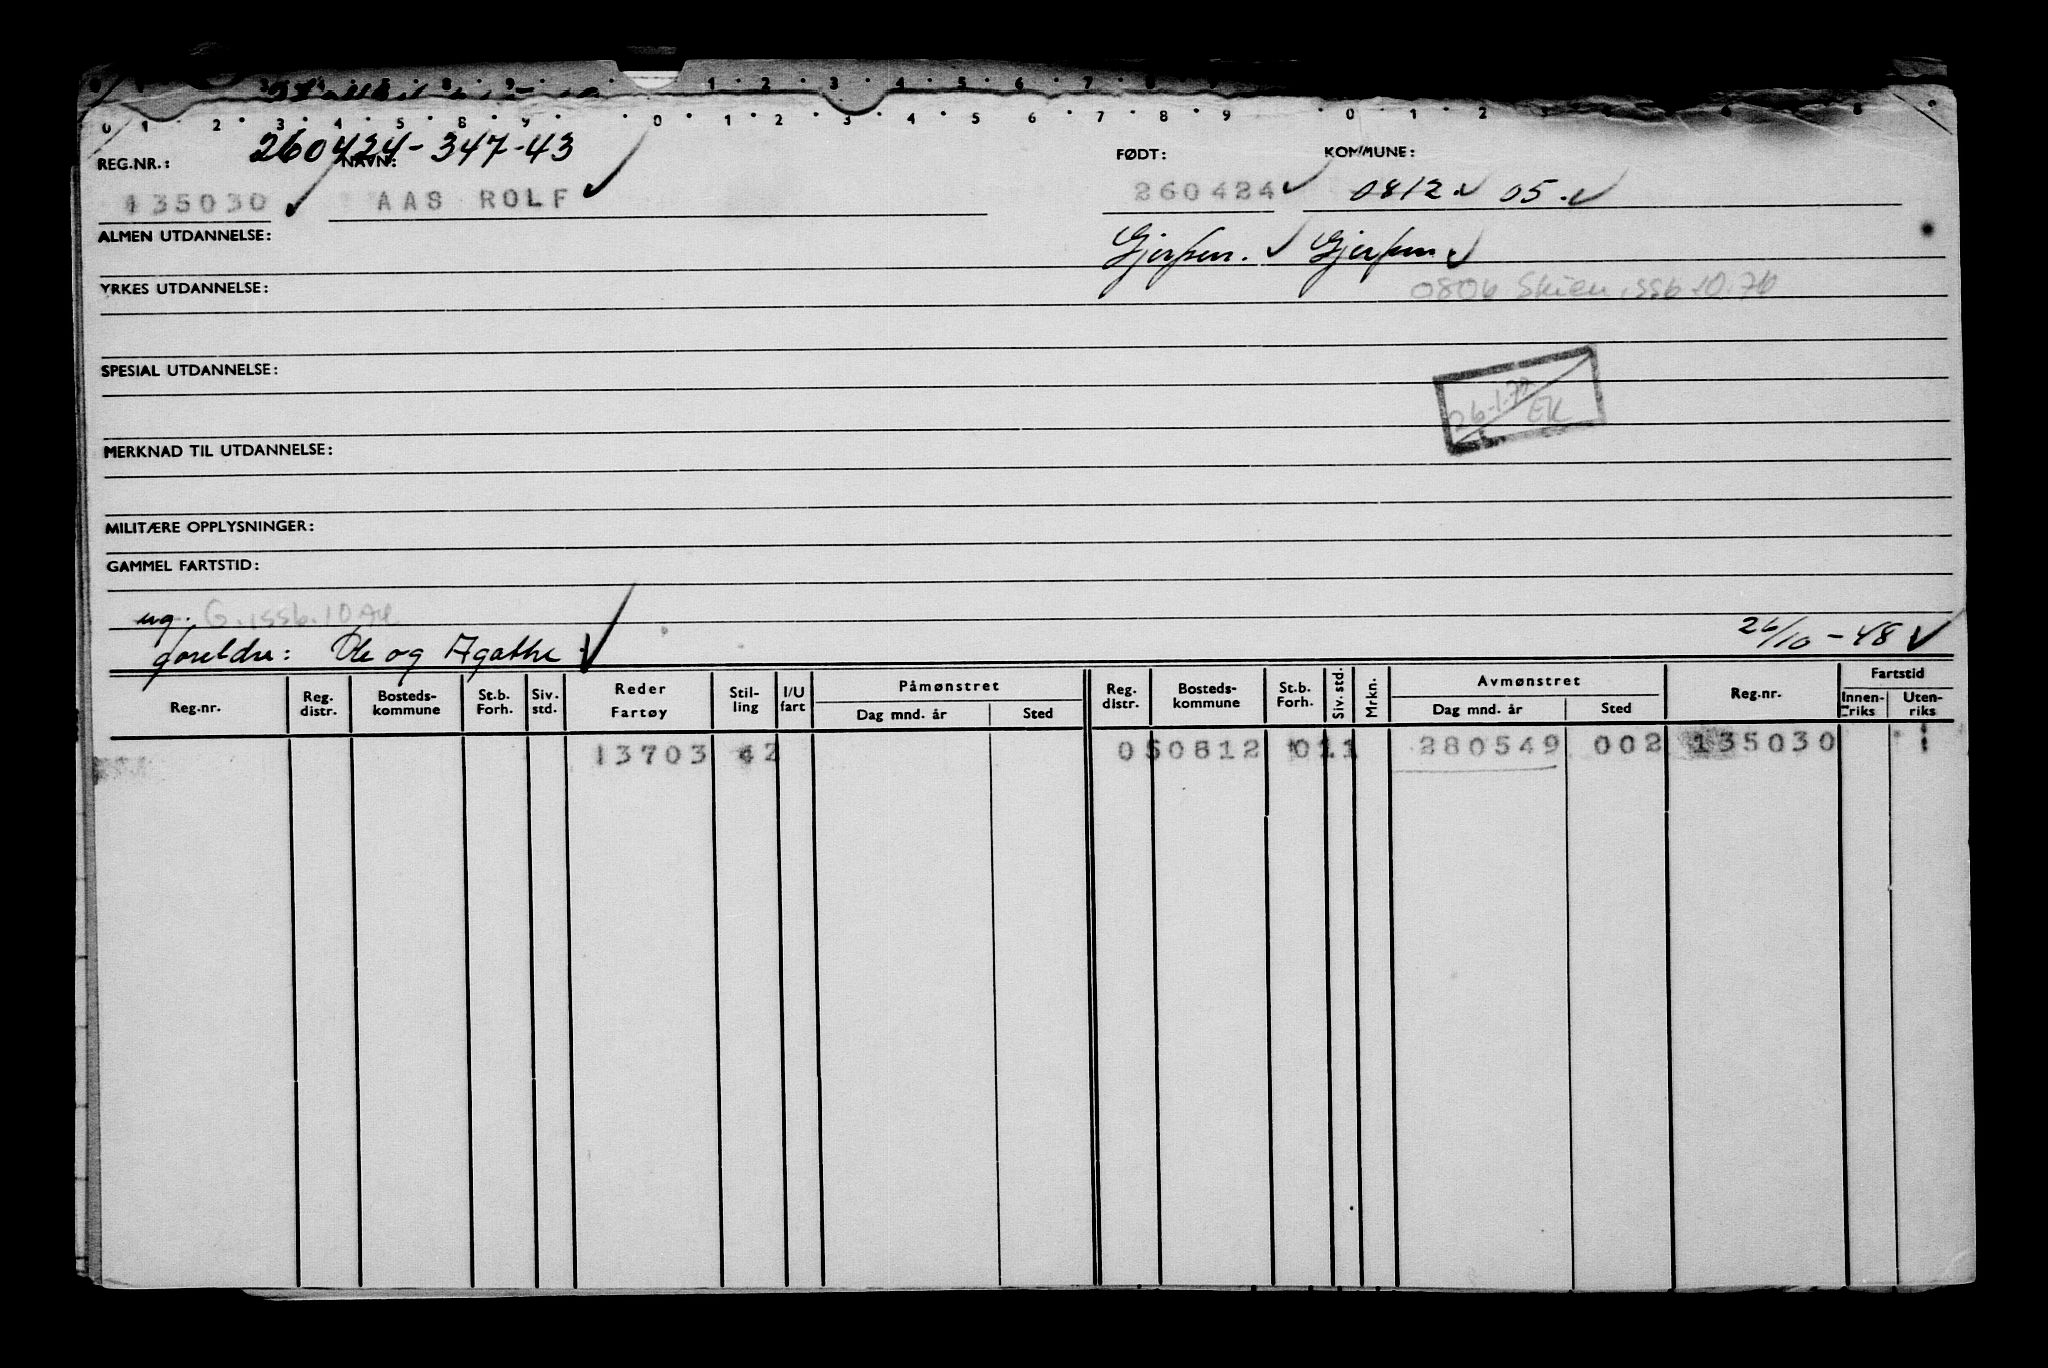 0 1 2 3 4 5 8 9 0 1 2 3 4 5 6 7 8 9 0 1 2
260424-347-43
REG.NR.: NAVN: FØDT: KOMMUNE:
135030 AAS ROLF 260424 0812 05.
ALMEN UTDANNELSE: Gjerpen. Gjerpen
YRKES UTDANNELSE: 0806 Skien, ssb 10.70
SPESIAL UTDANNELSE:
EK
MERKNAD TIL UTDANNELSE:
MILITÆRE OPPLYSNINGER:
GAMMEL FARTSTID:
ug. G.
foreldre: Ole og Agathe 26/10-48
Reg.nr. Reg. distr. Bosteds-kommune St.b. Forh. Siv. std. Reder Fartøy Stil-ling I/U fart Påmønstret Dag mnd. år Sted Reg. distr. Bosteds-kommune St.b. Forh. Siv. std. Mrkn. Avmønstret Dag mnd. år Sted Reg.nr. Fartstid Innen-riks Uten-riks
13703 42 050812 011 280549 002 135030 1